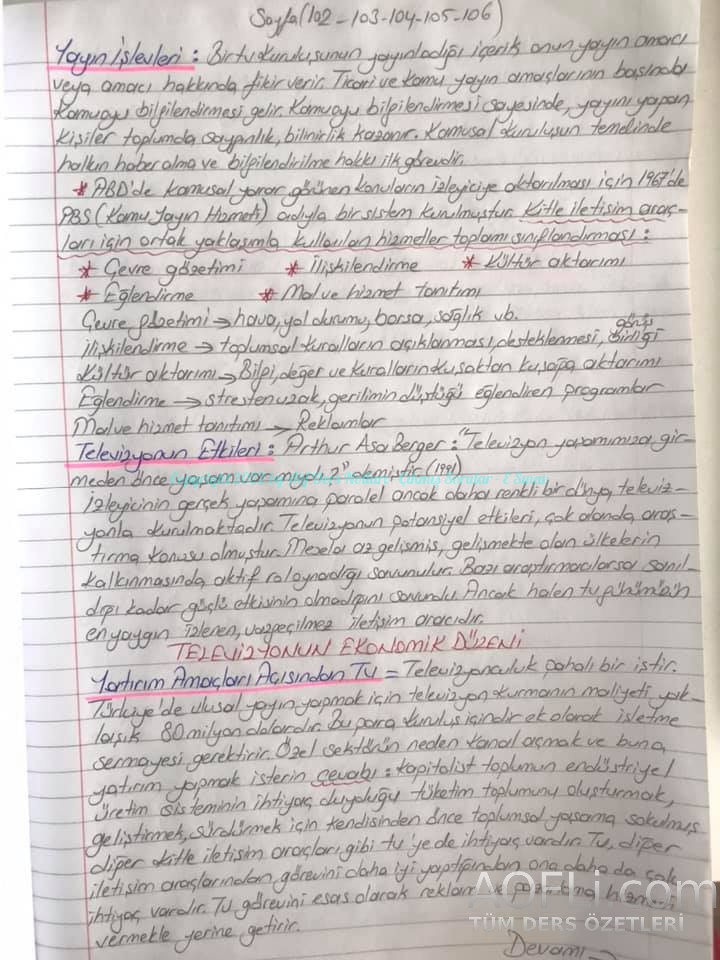 Sayfa (102-103-104-105-106)
Yayın İşlevleri : Bir tv kuruluşunun yayınladığı içerik onun yayın amacı
veya amacı hakkında fikir verir. Ticari ve kamu yayın amaçlarının başında
Kamuoyu bilgilendirmesi gelir. Kamuoyu bilgilendirmesi sayesinde, yayını yapan
kişiler toplumda saygınlık, bilinirlik kazanır. Kamusal kuruluşun temelinde
halkın haber alma ve bilgilendirilme hakkı ilk görevdir.
* ABD'de kamusal yarar görünen konuların izleyiciye aktarılması için 1967'de
PBS (Kamu Yayın Hizmeti) adıyla bir sistem kurulmuştur. Kitle iletişim araç-
ları için ortak yaklaşımla kullanılan hizmetler toplamı sınıflandırması :
* Çevre gözetimi * İlişkilendirme * Kültür aktarımı
* Eğlendirme * Mal ve hizmet tanıtımı
Çevre gözetimi → hava, yol durumu, borsa, sağlık vb.
İlişkilendirme → toplumsal kuralların açıklanması, desteklenmesi, görüş birliği
Kültür aktarımı → Bilgi, değer ve kuralların kuşaktan kuşağa aktarımı
Eğlendirme → stresten uzak, gerilimin düştüğü eğlendiren programlar
Mal ve hizmet tanıtımı → Reklamlar
Televizyonun Etkileri : Arthur Asa Berger : "Televizyon yaşamımıza gir-
meden önce yaşam var mıydı?" demiştir (1991)
izleyicinin gerçek yaşamına paralel ancak daha renkli bir dünya, televiz-
yonla kurulmaktadır. Televizyonun potansiyel etkileri, çok alanda araş-
tırma konusu olmuştur. Mesela az gelişmiş, gelişmekte olan ülkelerin
kalkınmasında aktif rol oynadığı savunulur. Bazı araştırmacılarsa sanıl-
dığı kadar güçlü etkisinin olmadığını savundu. Ancak halen tv günümüzün
en yaygın izlenen, vazgeçilmez iletişim aracıdır.
TELEVİZYONUN EKONOMİK DÜZENİ
Yatırım Amaçları Açısından TV = Televizyonculuk pahalı bir iştir.
Türkiye'de ulusal yayın yapmak için televizyon kurmanın maliyeti yak-
laşık 80 milyon dolardır. Bu para kuruluş içindir ek olarak işletme
sermayesi gerektirir. Özel sektörün neden kanal açmak ve buna
yatırım yapmak isterin cevabı : Kapitalist toplumun endüstriyel
üretim sisteminin ihtiyaç duyduğu tüketim toplumunu oluşturmak,
geliştirmek, sürdürmek için kendisinden önce toplumsal yaşama sokulmuş
diğer kitle iletişim araçları gibi tv'ye de ihtiyaç vardır. Tv, diğer
iletişim araçlarından görevini daha iyi yaptığından ona daha da çok
ihtiyaç vardır. TV görevini esas olarak reklam ile pazarlama hizmeti
vermekle yerine getirir.
Devamı →
AOFLi.com
TÜM DERS ÖZETLERİ